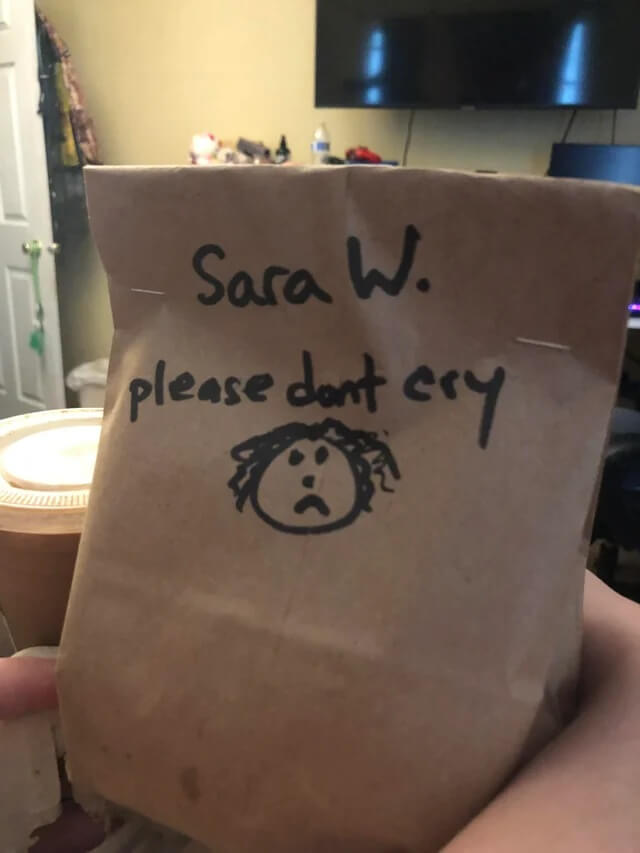 Sara W.
please dont cry